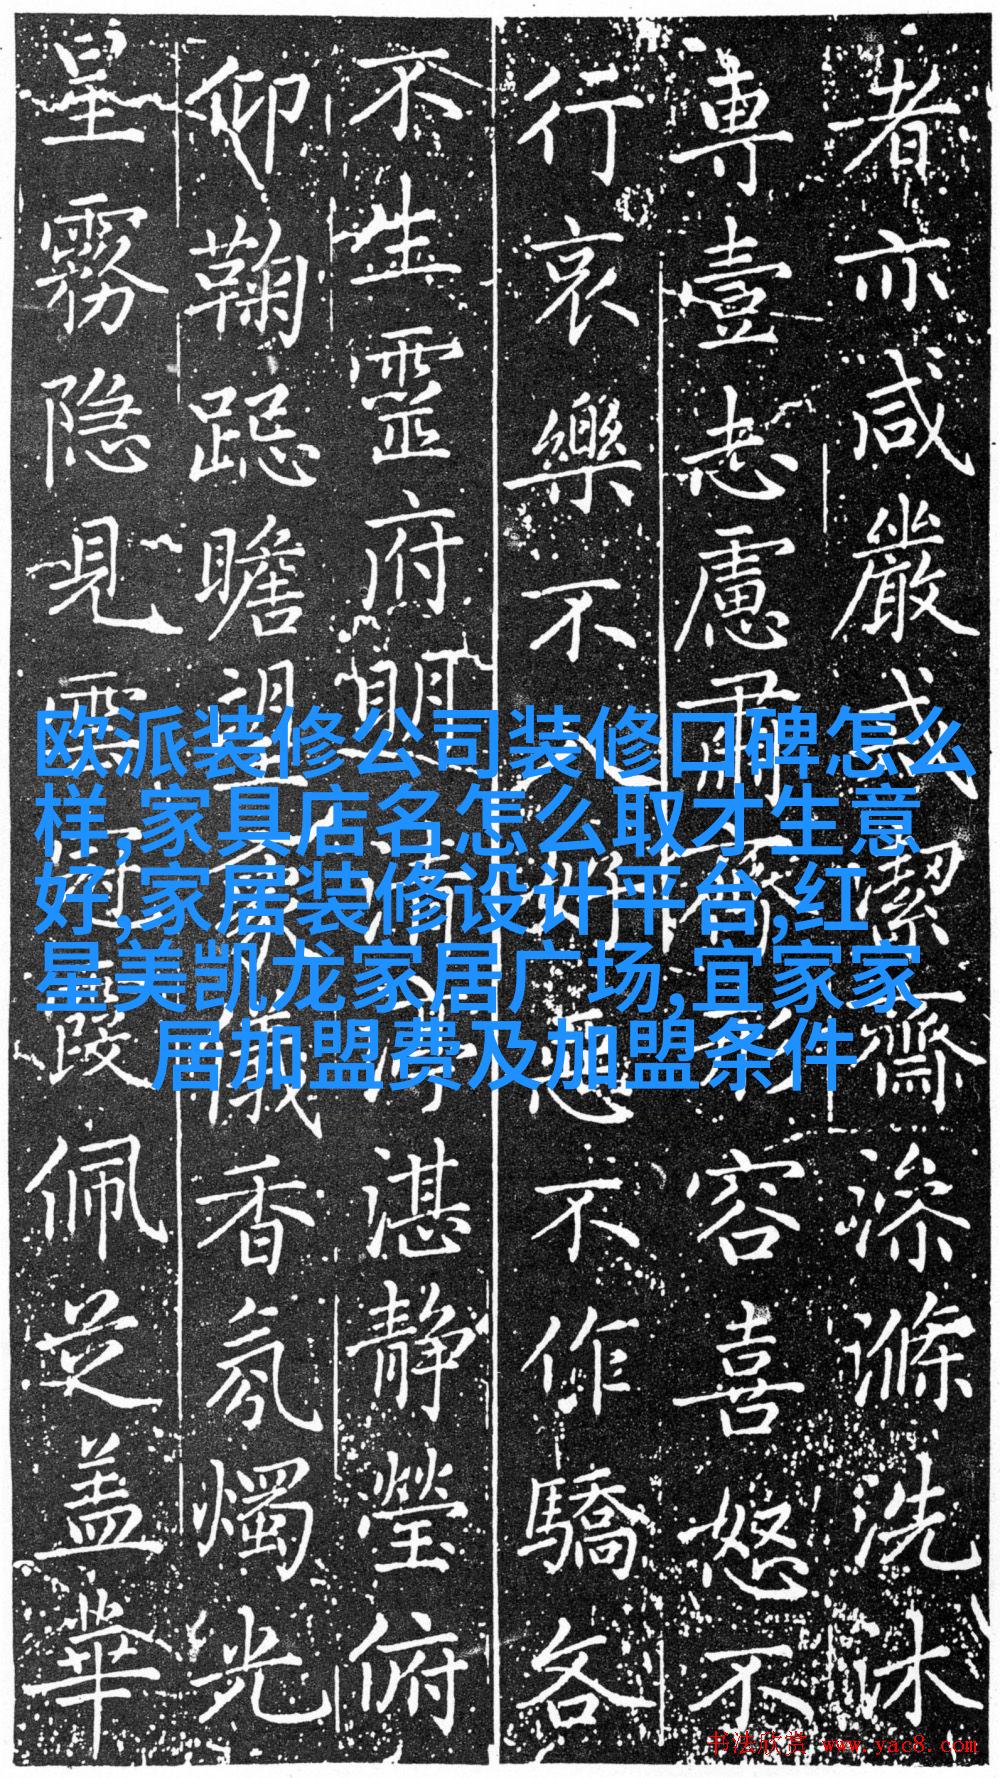 者亦咸嚴戒潔齋澡滌洗沐
専壹志慮肅齊容喜怒不
行哀樂不入好惡不作驕各
不生靈府明清湛静瑩俯
仰鞠跽瞻望儀香氛燭光
星霧隐見雲霞佩芝盖華
欧派装修公司装修口碑怎么
样,家具店名怎么取才生意
好,家居装修设计平台,红
星美凯龙家居广场,宜家家
居加盟费及加盟条件
书法欣赏 www.yac8.com